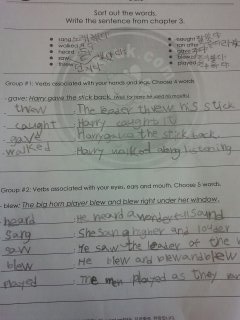 Sort out the words.
Write the sentence from chapter 3.
sang
walked
heard
saw
threw
caught
ran after
gave
blew
played
Group #1: Verbs associated with your hands and legs. Choose 4 words.
- gave: Harry gave the stick back.
threw The leader threw his stick
caught Harry caught it
gave Harry gave the stick back
walked Harry walked along listening
Group #2: Verbs associated with your eyes, ears and mouth. Choose 5 words.
- blew: The big horn player blew and blew right under her window.
heard He heard a wonderful sound
Sang She Sang higher and louder
saw He saw the leader of the
blew He blew and blew and blew
Played The men played as they